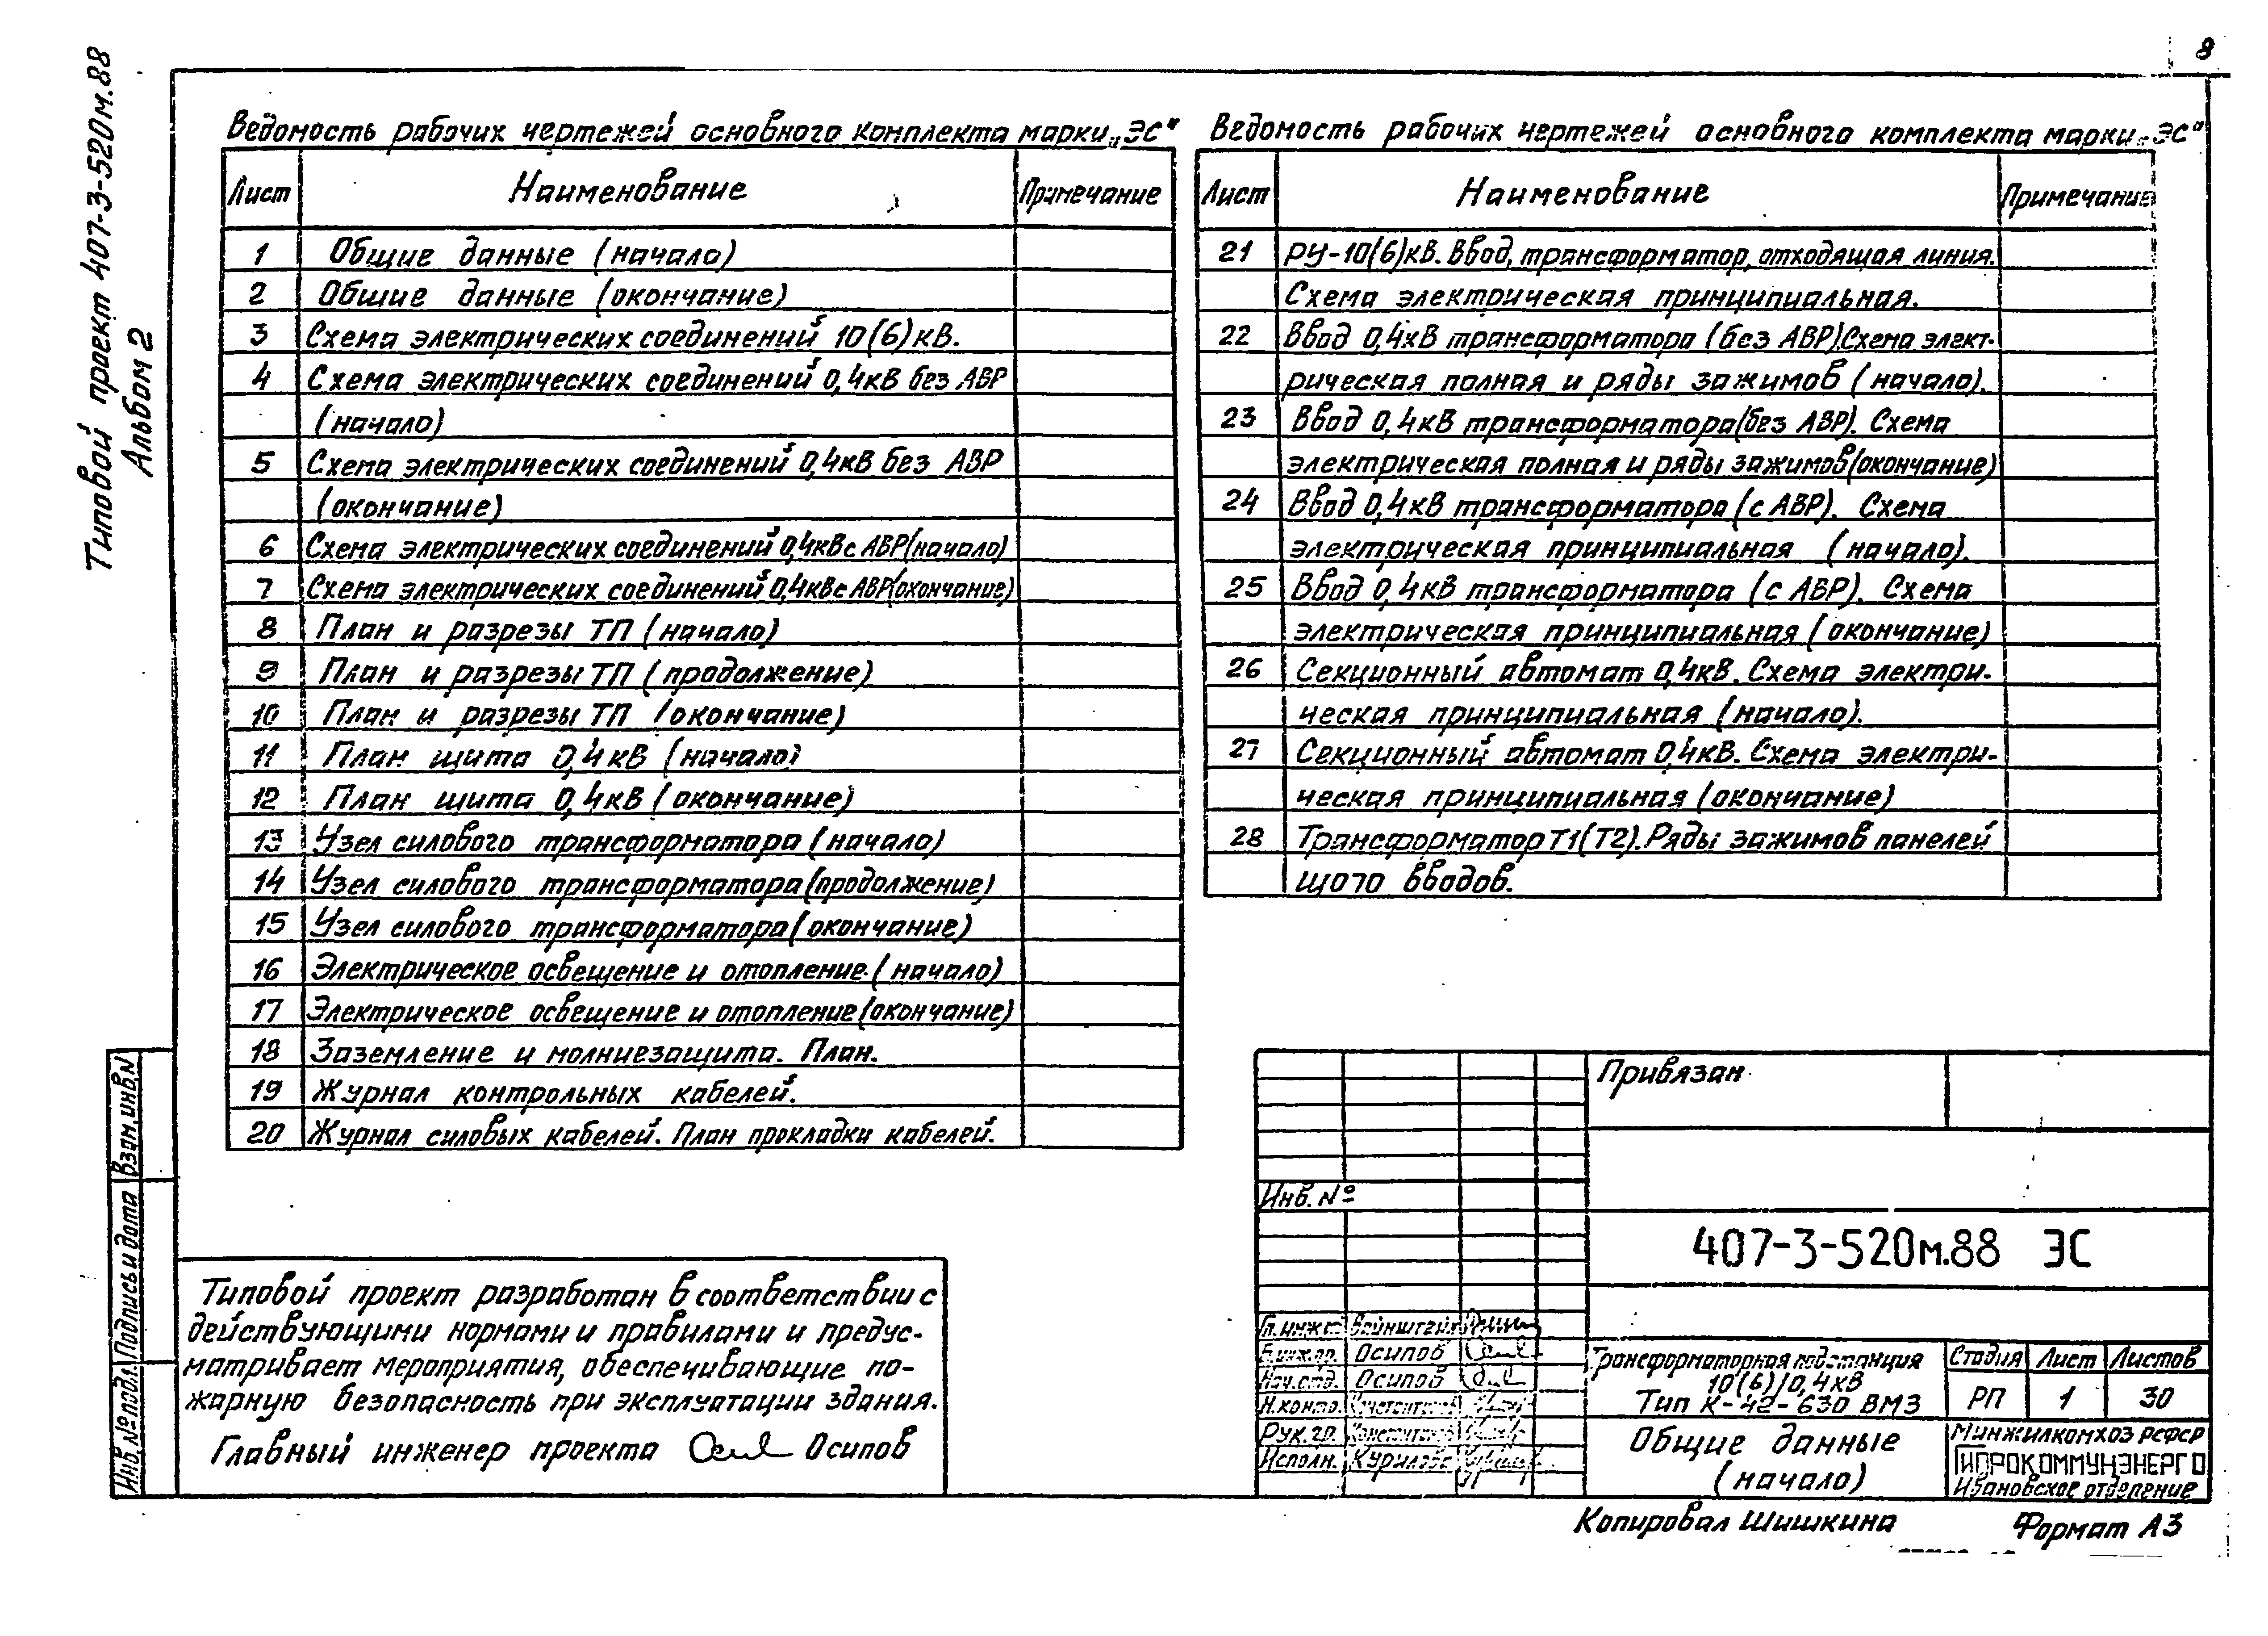 8
Типовой проект 407-3-520м.88
Альбом 2
Ведомость рабочих чертежей основного комплекта марки „ЭС"
Лист Наименование Примечание
1 Общие данные (начало)
2 Общие данные (окончание)
3 Схема электрических соединений 10(6)кВ.
4 Схема электрических соединений 0,4кВ без АВР
(начало)
5 Схема электрических соединений 0,4кВ без АВР
(окончание)
6 Схема электрических соединений 0,4кВ с АВР(начало)
7 Схема электрических соединений 0,4кВ с АВР(окончание)
8 План и разрезы ТП (начало)
9 План и разрезы ТП (продолжение)
10 План и разрезы ТП (окончание)
11 План щита 0,4кВ (начало)
12 План щита 0,4кВ (окончание)
13 Узел силового трансформатора (начало)
14 Узел силового трансформатора (продолжение)
15 Узел силового трансформатора (окончание)
16 Электрическое освещение и отопление (начало)
17 Электрическое освещение и отопление (окончание)
18 Заземление и молниезащита. План.
19 Журнал контрольных кабелей.
20 Журнал силовых кабелей. План прокладки кабелей.
Ведомость рабочих чертежей основного комплекта марки „ЭС"
Лист Наименование Примечание
21 РУ-10(6)кВ. Ввод, трансформатор, отходящая линия.
Схема электрическая принципиальная.
22 Ввод 0,4кВ трансформатора (без АВР).Схема элект-
рическая полная и ряды зажимов (начало).
23 Ввод 0,4кВ трансформатора(без АВР). Схема
электрическая полная и ряды зажимов(окончание)
24 Ввод 0,4кВ трансформатора (с АВР). Схема
электрическая принципиальная (начало).
25 Ввод 0,4кВ трансформатора (с АВР). Схема
электрическая принципиальная (окончание)
26 Секционный автомат 0,4кВ. Схема электри-
ческая принципиальная (начало).
27 Секционный автомат 0,4кВ. Схема электри-
ческая принципиальная (окончание)
28 Трансформатор Т1(Т2). Ряды зажимов панелей
щого вводов.
Взам.инв.N
Подпись и дата
Инв.№подл.
Типовой проект разработан в соответствии с
действующими нормами и правилами и предус-
матривает мероприятия, обеспечивающие по-
жарную безопасность при эксплуатации здания.
Главный инженер проекта Осипов
Привязан
Инв.№
407-3-520м.88 ЭС
Гл.инж. Вайнштейн
Гл.инж.пр. Осипов
Нач.отд. Осипов
Н.контр.
Рук.гр.
Исполн.
Трансформаторная подстанция
10(6)/0,4кВ
Тип К-42-630 ВМЗ
Стадия Лист Листов
РП 1 30
Общие данные
(начало)
Минжилкомхоз РСФСР
ГИПРОКОММУНЭНЕРГО
Ивановское отделение
Копировал Шишкина Формат А3